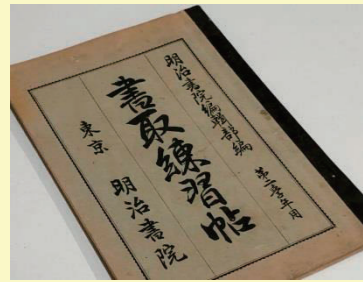 明治書院編輯部編
第二学年用
書取練習帖
東京 明治書院